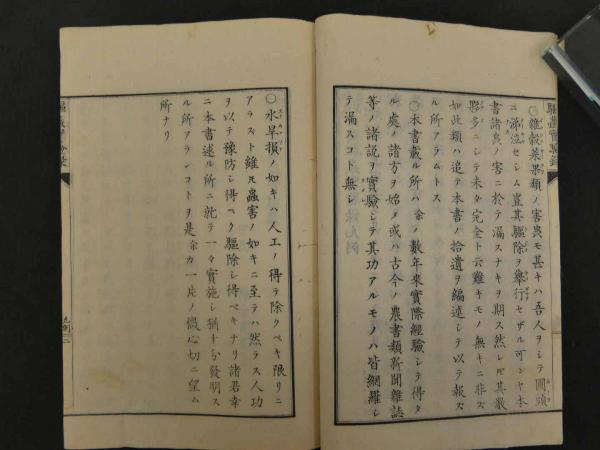 〇雑穀菜果類ノ害虫モ甚キハ吾人ヲシテ圃頭
ニ涕泣セシム豈其駆除ヲ舉行セザル可ンヤ本
書諸虫ノ害ニ於テ漏スナキヲ期ス然レ𪜈其数
夥多ニシテ未タ完全ト云難キモノ無キニ非ズ
如此類ハ追テ本書ノ拾遺ヲ編述シテ以テ報ズ
ル所アラムトス
〇本書載ル所ハ余ノ数年來實際經驗シテ得タ
ル處ノ諸方ヲ始メ或ハ古今ノ農書類新聞雜誌
等ノ諸説ヲ實驗シテ其功アルモノハ皆網羅シ
テ漏スコト無シ
〇水旱損ノ如キハ人工ノ得テ除クベキ限リニ
アラズト雖𪜈蟲害ノ如キニ至テハ然ラス人功
ヲ以テ豫防シ得ベク驅除シ得ベキナリ諸君幸
ニ本書述ル所ニ就テ一々實施シ猶十分發明ス
ル所アランコトヲ是余カ一片ノ微心切ニ望ム
所ナリ
凡例 二